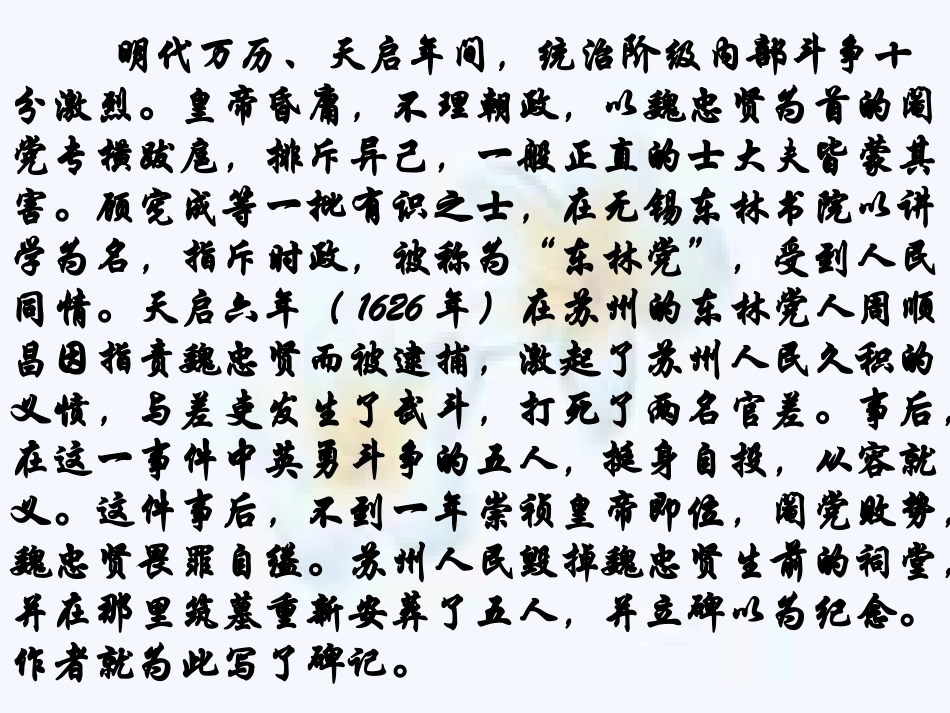 明代万历、天启年间，统治阶级内部斗争十
分激烈。皇帝昏庸，不理朝政，以魏忠贤为首的阉
党专横跋扈，排斥异己，一般正直的士大夫皆蒙其
害。顾宪成等一批有识之士，在无锡东林书院以讲
学为名，指斥时政，被称为“东林党”，受到人民
同情。天启六年（1626年）在苏州的东林党人周顺
昌因指责魏忠贤而被逮捕，激起了苏州人民久积的
义愤，与差吏发生了武斗，打死了两名官差。事后，
在这一事件中英勇斗争的五人，挺身自投，从容就
义。这件事后，不到一年崇祯皇帝即位，阉党败势，
魏忠贤畏罪自缢。苏州人民毁掉魏忠贤生前的祠堂，
并在那里筑墓重新安葬了五人，并立碑以为纪念。
作者就为此写了碑记。